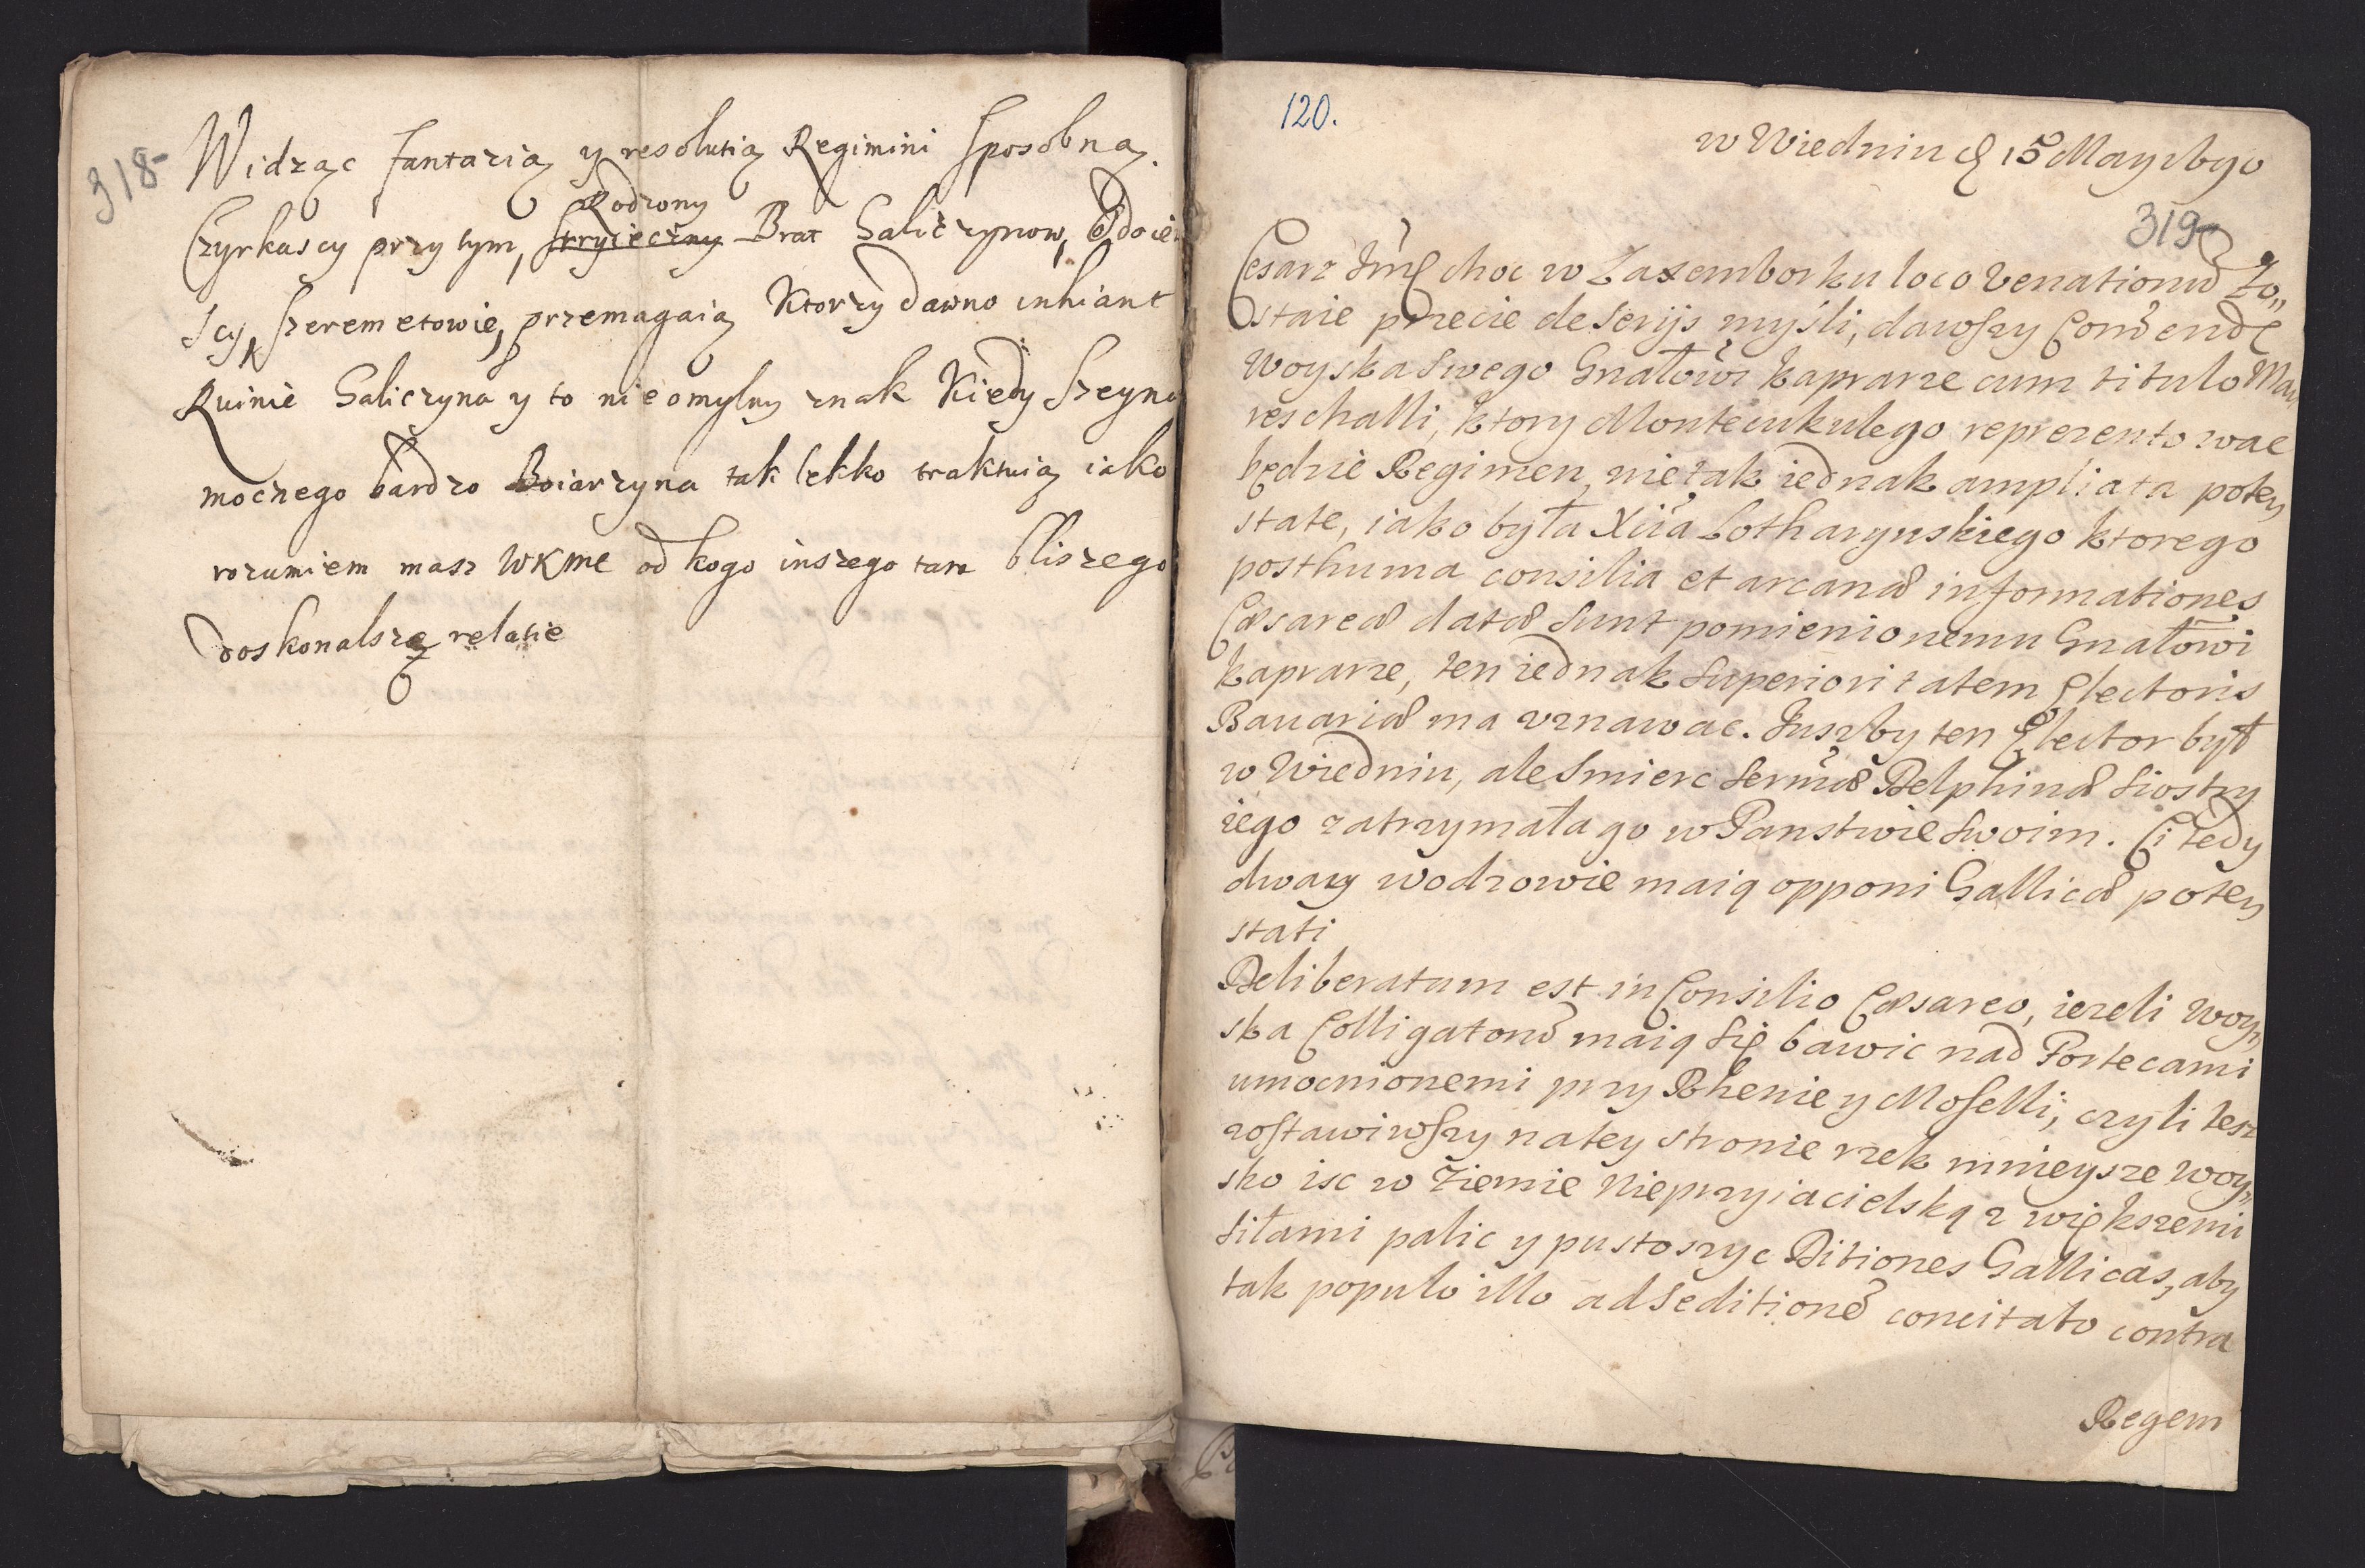 318-
Widząc fantazią y resolutią Regimini sposobną.
Rodzony
Czyrkascy przy tym, stryieczny Brat Galiczynow, Odoie
scy, Szeremetowie, przemagaią Ktorzy dawno inhiant
Ruinie Galiczyna y to nieomylny znak Kiedy Szeyna
mocnego bardzo Boiarzyna tak lekko traktuią iako
rozumiem masz WKMc od kogo inszego tam bliszego
doskonalszą relatie
120.
w Wiedniu d 15 May 1690
319-
Cesarz Jmć choc w Laxemborku loco venationũ Zo„
staie przecie de serijs myśli, dawszy Com̃endę
Woyska swego Gnałowi kaprarze cum titulo Ma„
reschalli, ktory Montecukulego reprezentowac
będzie Regimen, nie tak iednak ampliata pote„
state, iako była Xcia Lotharynskiego ktorego
posthuma consilia et arcanæ informationes
Cæsareæ datæ sunt pomienionemu Gnałowi
kaprarze, ten iednak superioritatem Electoris
Bavariæ ma uznawac. Juszby ten Elector był
w Wiedniu, ale smierc Sermæ Delphinæ siostry
iego zatrzymała go w Panstwie swoim. Ci tedy
dway wodzowie maią opponi Gallicæ pote„
stati
Deliberatum est in Consilio Cæsareo, iezeli Woy„
ska Colligatorũ maią się bawic nad Fortecami
umocnionemi przy Rhenie y Moselli, czyli tesz
zostawiwszy na tey stronie rzek mnieysze woy„
sko isc w Ziemie Nieprzyiacielską z większemi
siłami palic y pustoszyc Ditiones Gallicas, aby
tak populo illo ad seditionẽ concitato contra
Regem